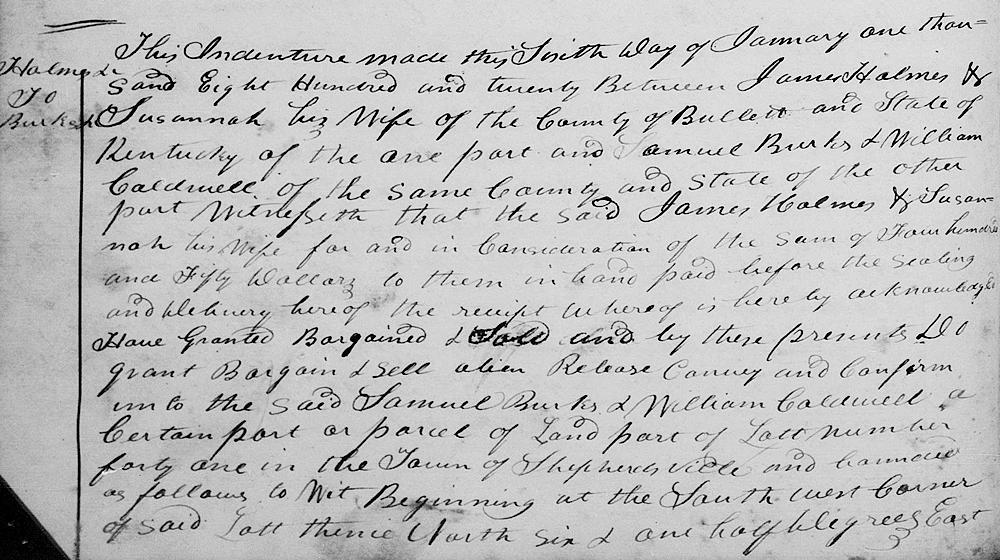 This Indenture made this Sixth Day of January one thou=
Holmes &
sand Eight Hundred and twenty Between James Holmes &
To
Burks &
Susannah his Wife of the County of Bullett and State of
Kentucky of the one part and Samuel Burks & William
Caldwell of the same County and State of the other
part Witnesseth that the said James Holmes & Susan=
nah his Wife for and in Consideration of the Sum of Four hundred
and Fifty Dollars to them in hand paid before the sealing
and Delivery hereof the receipt whereof is hereby acknowledged
Have Granted Bargained & Sold and by these presents Do
grant Bargain & Sell alien Release Convey and Confirm
unto the said Samuel Burks & William Caldwell a
Certain part or parcel of Land part of Lott number
forty one in the Town of Shepherdsville and bounded
as follows to Wit Beginning at the South west Corner
of said Lott thence North six & one half Degrees East